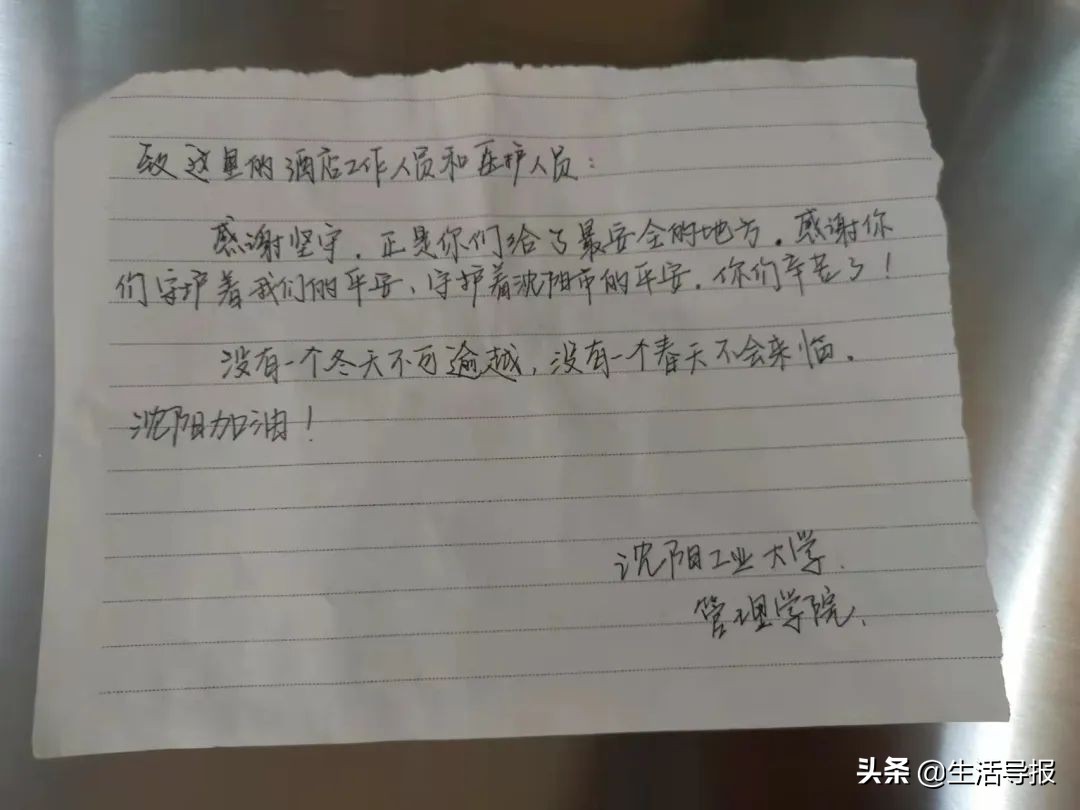 致这里的酒店工作人员和医护人员：
感谢坚守，正是你们给了最安全的地方。感谢你
们守护着我们的平安、守护着沈阳市的平安。你们辛苦了！
没有一个冬天不可逾越，没有一个春天不会来临。
沈阳加油！
沈阳工业大学.
管理学院.
头条 @生活导报